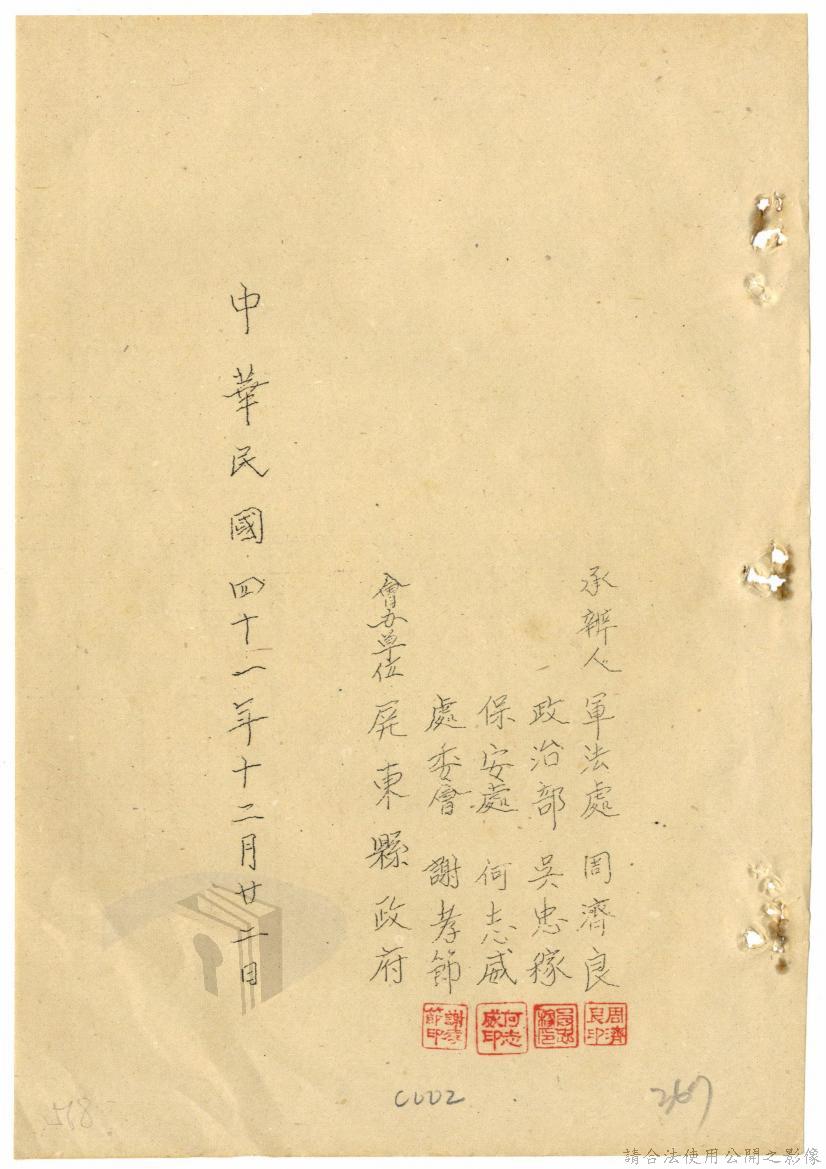 承辦人 軍法處 周濟良
政治部 吳忠稼
保安處 何志威
處委會 謝孝節
會办单位 屏東縣政府
中華民國四十一年十二月廿二日
周濟良印
何志威印
謝孝節印
CUD2
267
518
請合法使用公開之影像